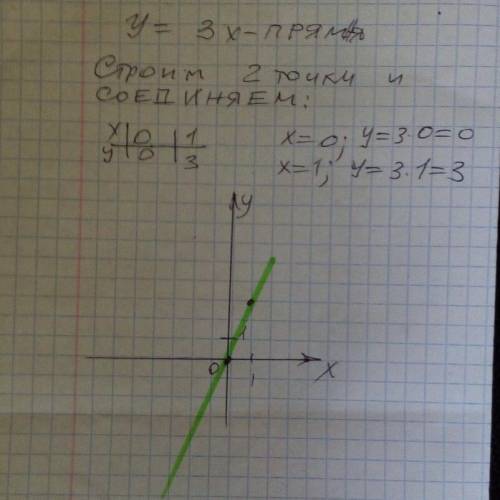 y = 3x - ПРЯМАЯ
Строим 2 точки и
СОЕДИНЯЕМ:
x 0 1 x=0; y=3·0=0
y 0 3 x=1; y=3·1=3
y
1
0 1 x